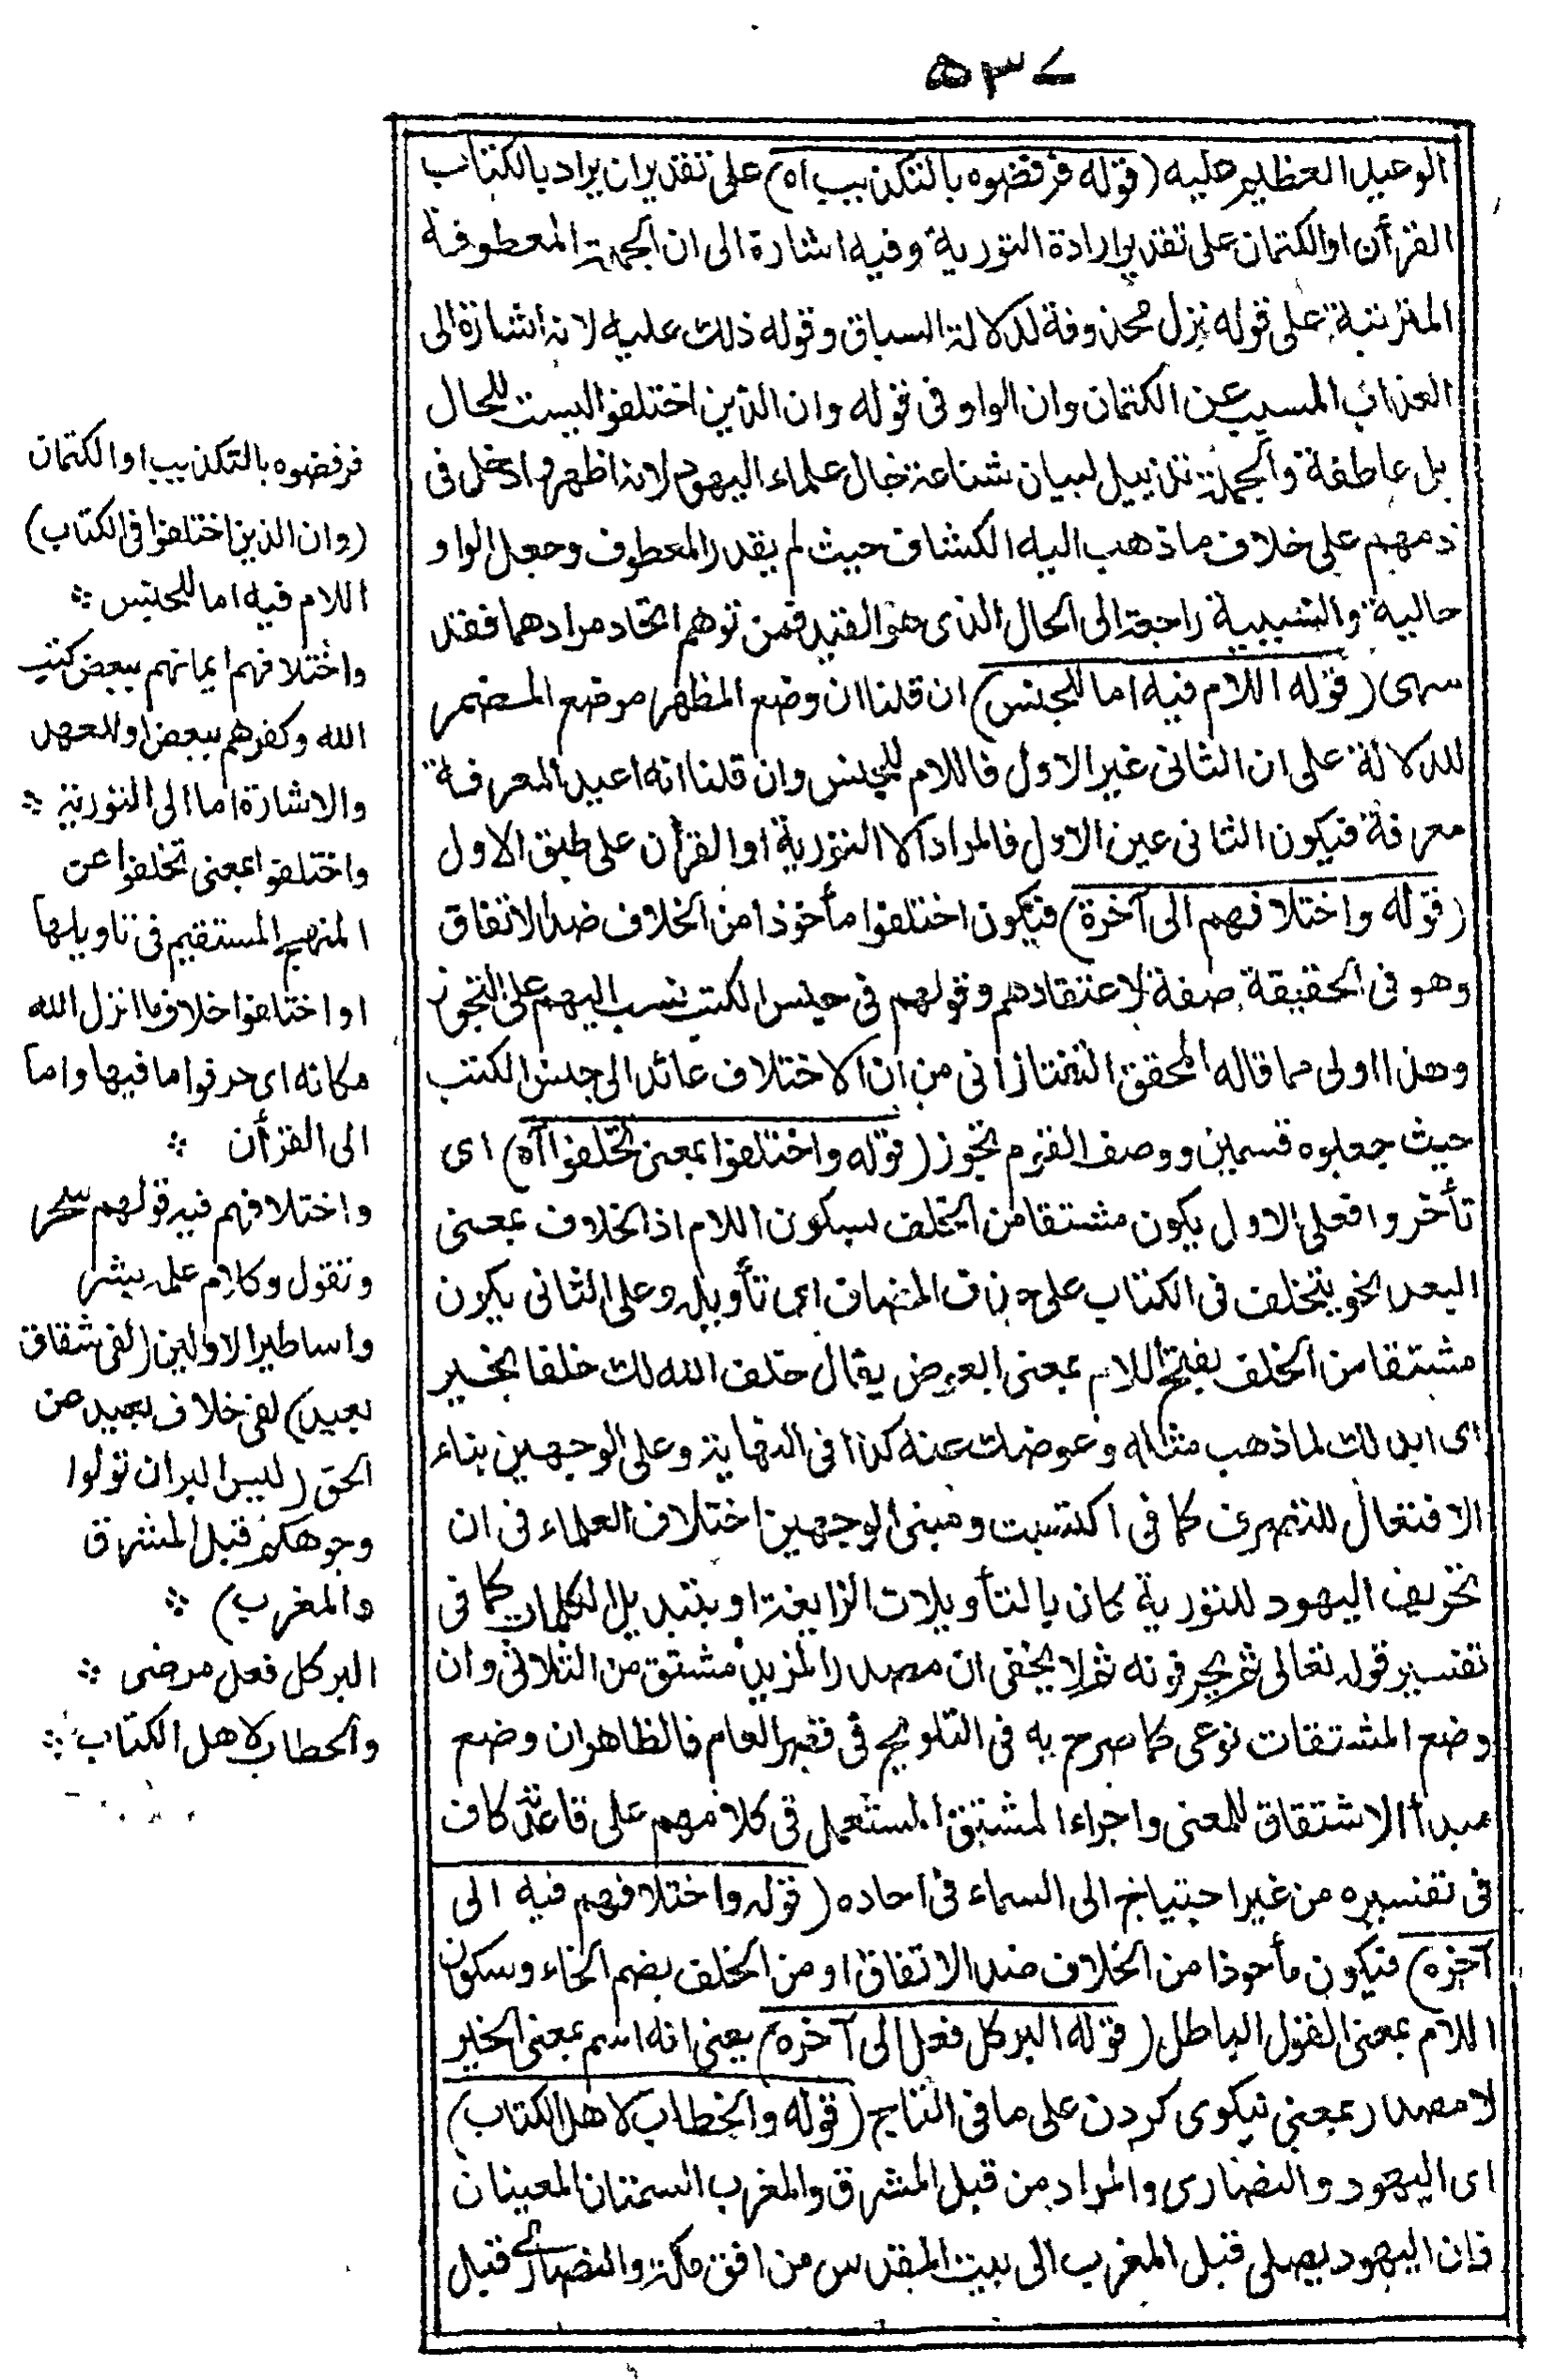 ٥٣٧
الوعيد العظيم عليه (قوله فرفضوه بالتكذيب اه) على تقدير ان يراد بالكتاب
القرأن او الكتمان على تقدير ارادة التورية وفيه اشارة الى ان الجملة المعطوفة
المترتبة على قوله نزل محذوفة لدلالة السباق وقوله ذلك عليه لانه اشارة الى
العذاب المسبب عن الكتمان وان الواو فى قوله وان الذين اختلفوا ليست للحال
بل عاطفة والجملة تذييل لبيان شناعة حال علماء اليهود لانه اظهر وادخل فى
ذمهم على خلاف ما ذهب اليه الكشاف حيث لم يقدر المعطوف وجعل الواو
حالية والسببية راجعة الى الحال الذى هو القيد فمن توهم اتحاد مرادهما فقد
سهى (قوله اللام فيه اما للجنس) ان قلنا ان وضع المظهر موضع المضمر
للدلالة على ان الثانى غير الاول فاللام للجنس وان قلنا انه اعيد المعرفة
معرفة فيكون الثانى عين الاول فالمراد اما التورية او القرأن على طبق الاول
(قوله واختلافهم الى آخرة) فيكون اختلفوا مأخوذا من الخلاف ضد الاتفاق
وهو فى الحقيقة صفة لاعتقادهم وقولهم فى جنس الكتب نسب اليهم على التجوز
وهذا اولى مما قاله المحقق التفتازانى من ان الاختلاف عائد الى جنس الكتب
حيث جعلوه قسمين ووصف القوم تجوز (قوله واختلفوا بمعنى تخلفوا آه) اى
تأخروا فعلى الاول يكون مشتقا من الخلف بسكون اللام اذ الخلاف بمعنى
البعد لخو يتخلف فى الكتاب على حذف المضاف اى تأويله وعلى الثانى يكون
مشتقا من الخلف بفتح اللام بمعنى العوض يقال خلف الله لك خلفا بخير
اى ابدلك لما ذهب مثاله وعوضك عنه كذا فى النهاية وعلى الوجهين بناء
الافتعال للتصرف كما فى اكتسبت ومبنى الوجهين اختلاف العلماء فى ان
تحريف اليهود للتورية كان بالتأويلات الزايغة او بتبديل الكلمات كما فى
تفسير قوله تعالى ثم يحرفونه ثم لا يخفى ان مصدر المزيد مشتق من الثلاثى وان
وضع المشتقات نوعى كما صرح به فى التلويح فى العام فالظاهر ان وضع
مبدأ الاشتقاق للمعنى واجراء المشتق المستعمل فى كلامهم على قاعدة كاف
فى تفسيره من غير احتياج الى السماء فى احاده (قوله واختلافهم فيه الى
آخره) فيكون مأخوذا من الخلاف ضد الاتفاق او من الخلف بضم الخاء وسكون
اللام بمعنى القول الباطل (قوله البر كل فعل الى آخره) يعنى انه اسم بمعنى الخير
لا مصدر بمعنى نيكوى كردن على ما فى التاج (قوله والخطاب لاهل الكتاب)
اى اليهود والنصارى والمراد من قبل المشرق والمغرب السمتان المعينان
فان اليهود يصلى قبل المغرب الى بيت المقدس من افق مكة والنصارى قبل
فرفضوه بالتكذيب او الكتمان
(وان الذين اختلفوا فى الكتاب)
اللام فيه اما للجنس ؞
واختلافهم ايمانهم ببعض كتب
الله وكفرهم ببعض او للعهد
والاشارة اما الى التورية ؞
واختلفوا بمعنى تخلفوا عن
المنهج المستقيم فى تاويلها
او اختلفوا خلاف ما انزل الله
مكانه اى حرفوا ما فيها واما
الى القرأن ؞
واختلافهم فيه قولهم سحر
وتقول وكلام علمه بشر
واساطير الاولين (لفى شقاق
بعيد) لفى خلاف بعيد عن
الحق (ليس البر ان تولوا
وجوهكم قبل المشرق
والمغرب) ؞
البر كل فعل مرضى ؞
والخطاب لاهل الكتاب ؞